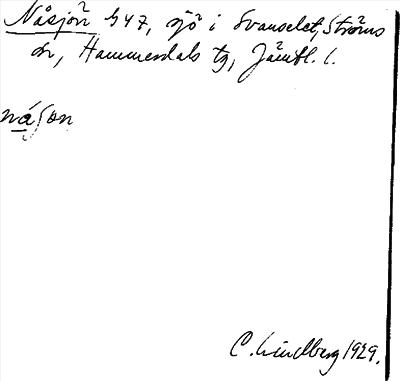 Nåsjön 547, sjö i Svanselet, Ströms
sn, Hammerdals tg, Jämtl. l.
nåſon
C. Lindberg 1929.